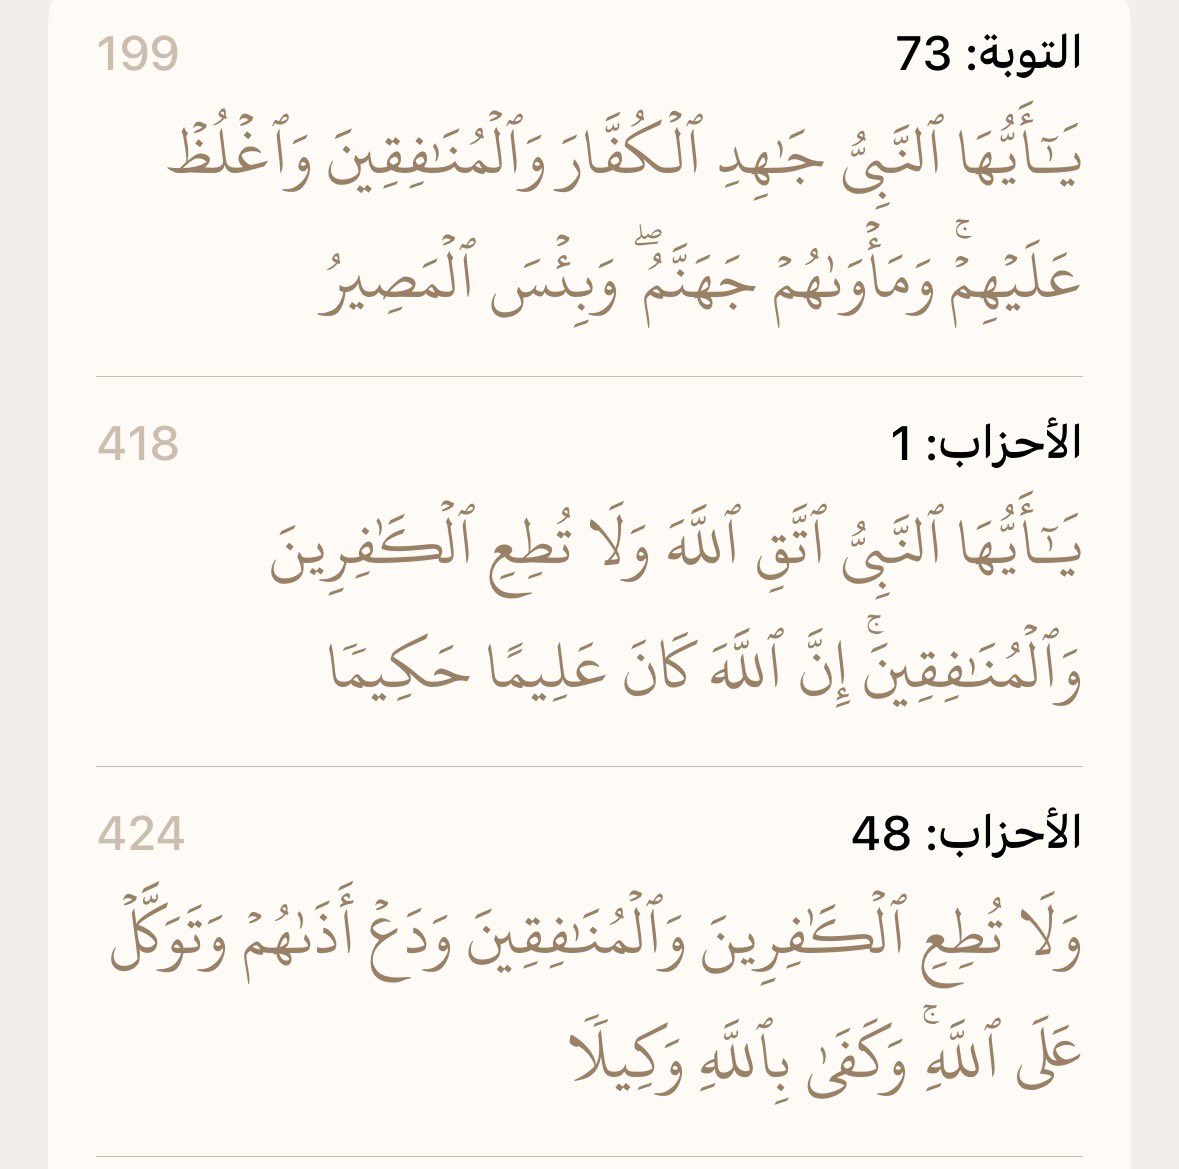 التوبة: 73 199
يَـٰٓأَيُّهَا ٱلنَّبِىُّ جَـٰهِدِ ٱلْكُفَّارَ وَٱلْمُنَـٰفِقِينَ وَٱغْلُظْ
عَلَيْهِمْ ۚ وَمَأْوَىٰهُمْ جَهَنَّمُ ۖ وَبِئْسَ ٱلْمَصِيرُ
الأحزاب: 1 418
يَـٰٓأَيُّهَا ٱلنَّبِىُّ ٱتَّقِ ٱللَّهَ وَلَا تُطِعِ ٱلْكَـٰفِرِينَ
وَٱلْمُنَـٰفِقِينَ ۚ إِنَّ ٱللَّهَ كَانَ عَلِيمًا حَكِيمًا
الأحزاب: 48 424
وَلَا تُطِعِ ٱلْكَـٰفِرِينَ وَٱلْمُنَـٰفِقِينَ وَدَعْ أَذَىٰهُمْ وَتَوَكَّلْ
عَلَى ٱللَّهِ ۚ وَكَفَىٰ بِٱللَّهِ وَكِيلًا